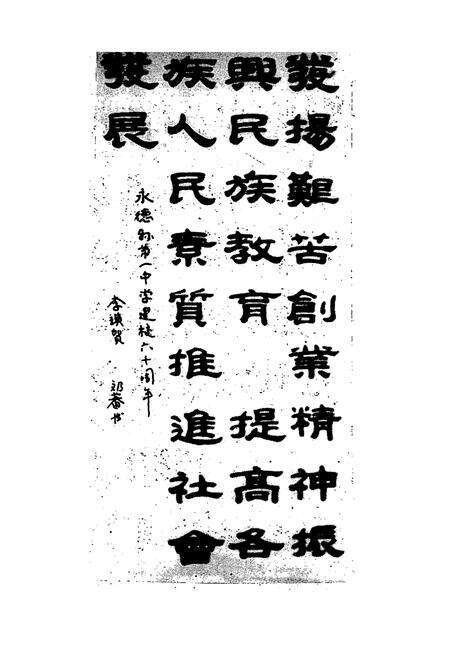 發揚艱苦創業精神振
興民族教育 提高各
族人民素質推進社會
發展
永德县第一中学建校六十周年
李琪賀